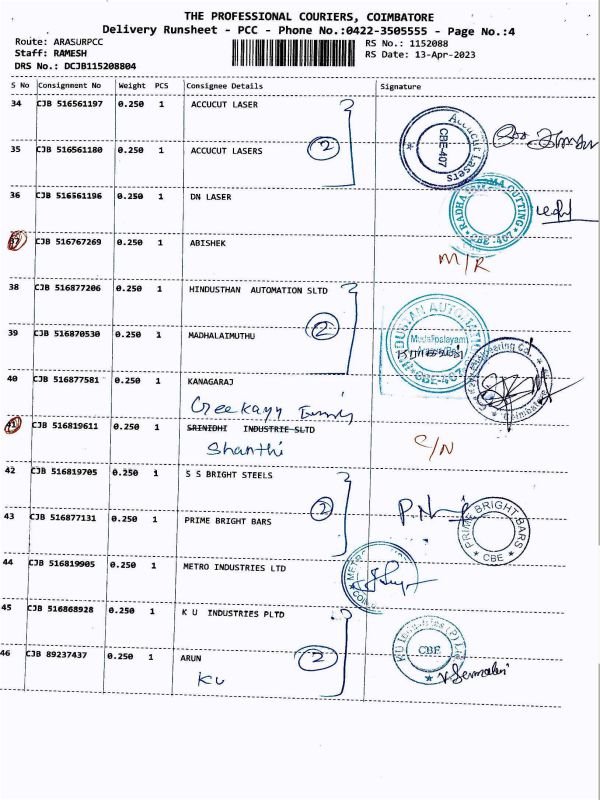 THE PROFESSIONAL COURIERS, COIMBATORE
Delivery Runsheet - PCC - Phone No.:0422-3505555 - Page No.:4
Route: ARASURPCC RS No.: 1152088
Staff: RAMESH RS Date: 13-Apr-2023
DRS No.: DCJB115208804
S No Consignment No Weight PCS Consignee Details Signature
34 CJB 516561197 0.250 1 ACCUCUT LASER
35 CJB 516561180 0.250 1 ACCUCUT LASERS 2 Accucut Lasers CBE-407
36 CJB 516561196 0.250 1 DN LASER CUTTING CBE-407
37 CJB 516767269 0.250 1 ABISHEK M/R
38 CJB 516877206 0.250 1 HINDUSTHAN AUTOMATION SLTD
39 CJB 516870530 0.250 1 MADHALAIMUTHU 2
40 CJB 516877581 0.250 1 KANAGARAJ Engineering Co. Coimbatore
41 CJB 516819611 0.250 1 SRINIDHI INDUSTRIE SLTD C/N
Shanthi
42 CJB 516819705 0.250 1 S S BRIGHT STEELS
43 CJB 516877131 0.250 1 PRIME BRIGHT BARS 2 PRIME BRIGHT BARS CBE
44 CJB 516819905 0.250 1 METRO INDUSTRIES LTD
45 CJB 516868928 0.250 1 K U INDUSTRIES PLTD
46 CJB 89237437 0.250 1 ARUN 2 CBE
KU